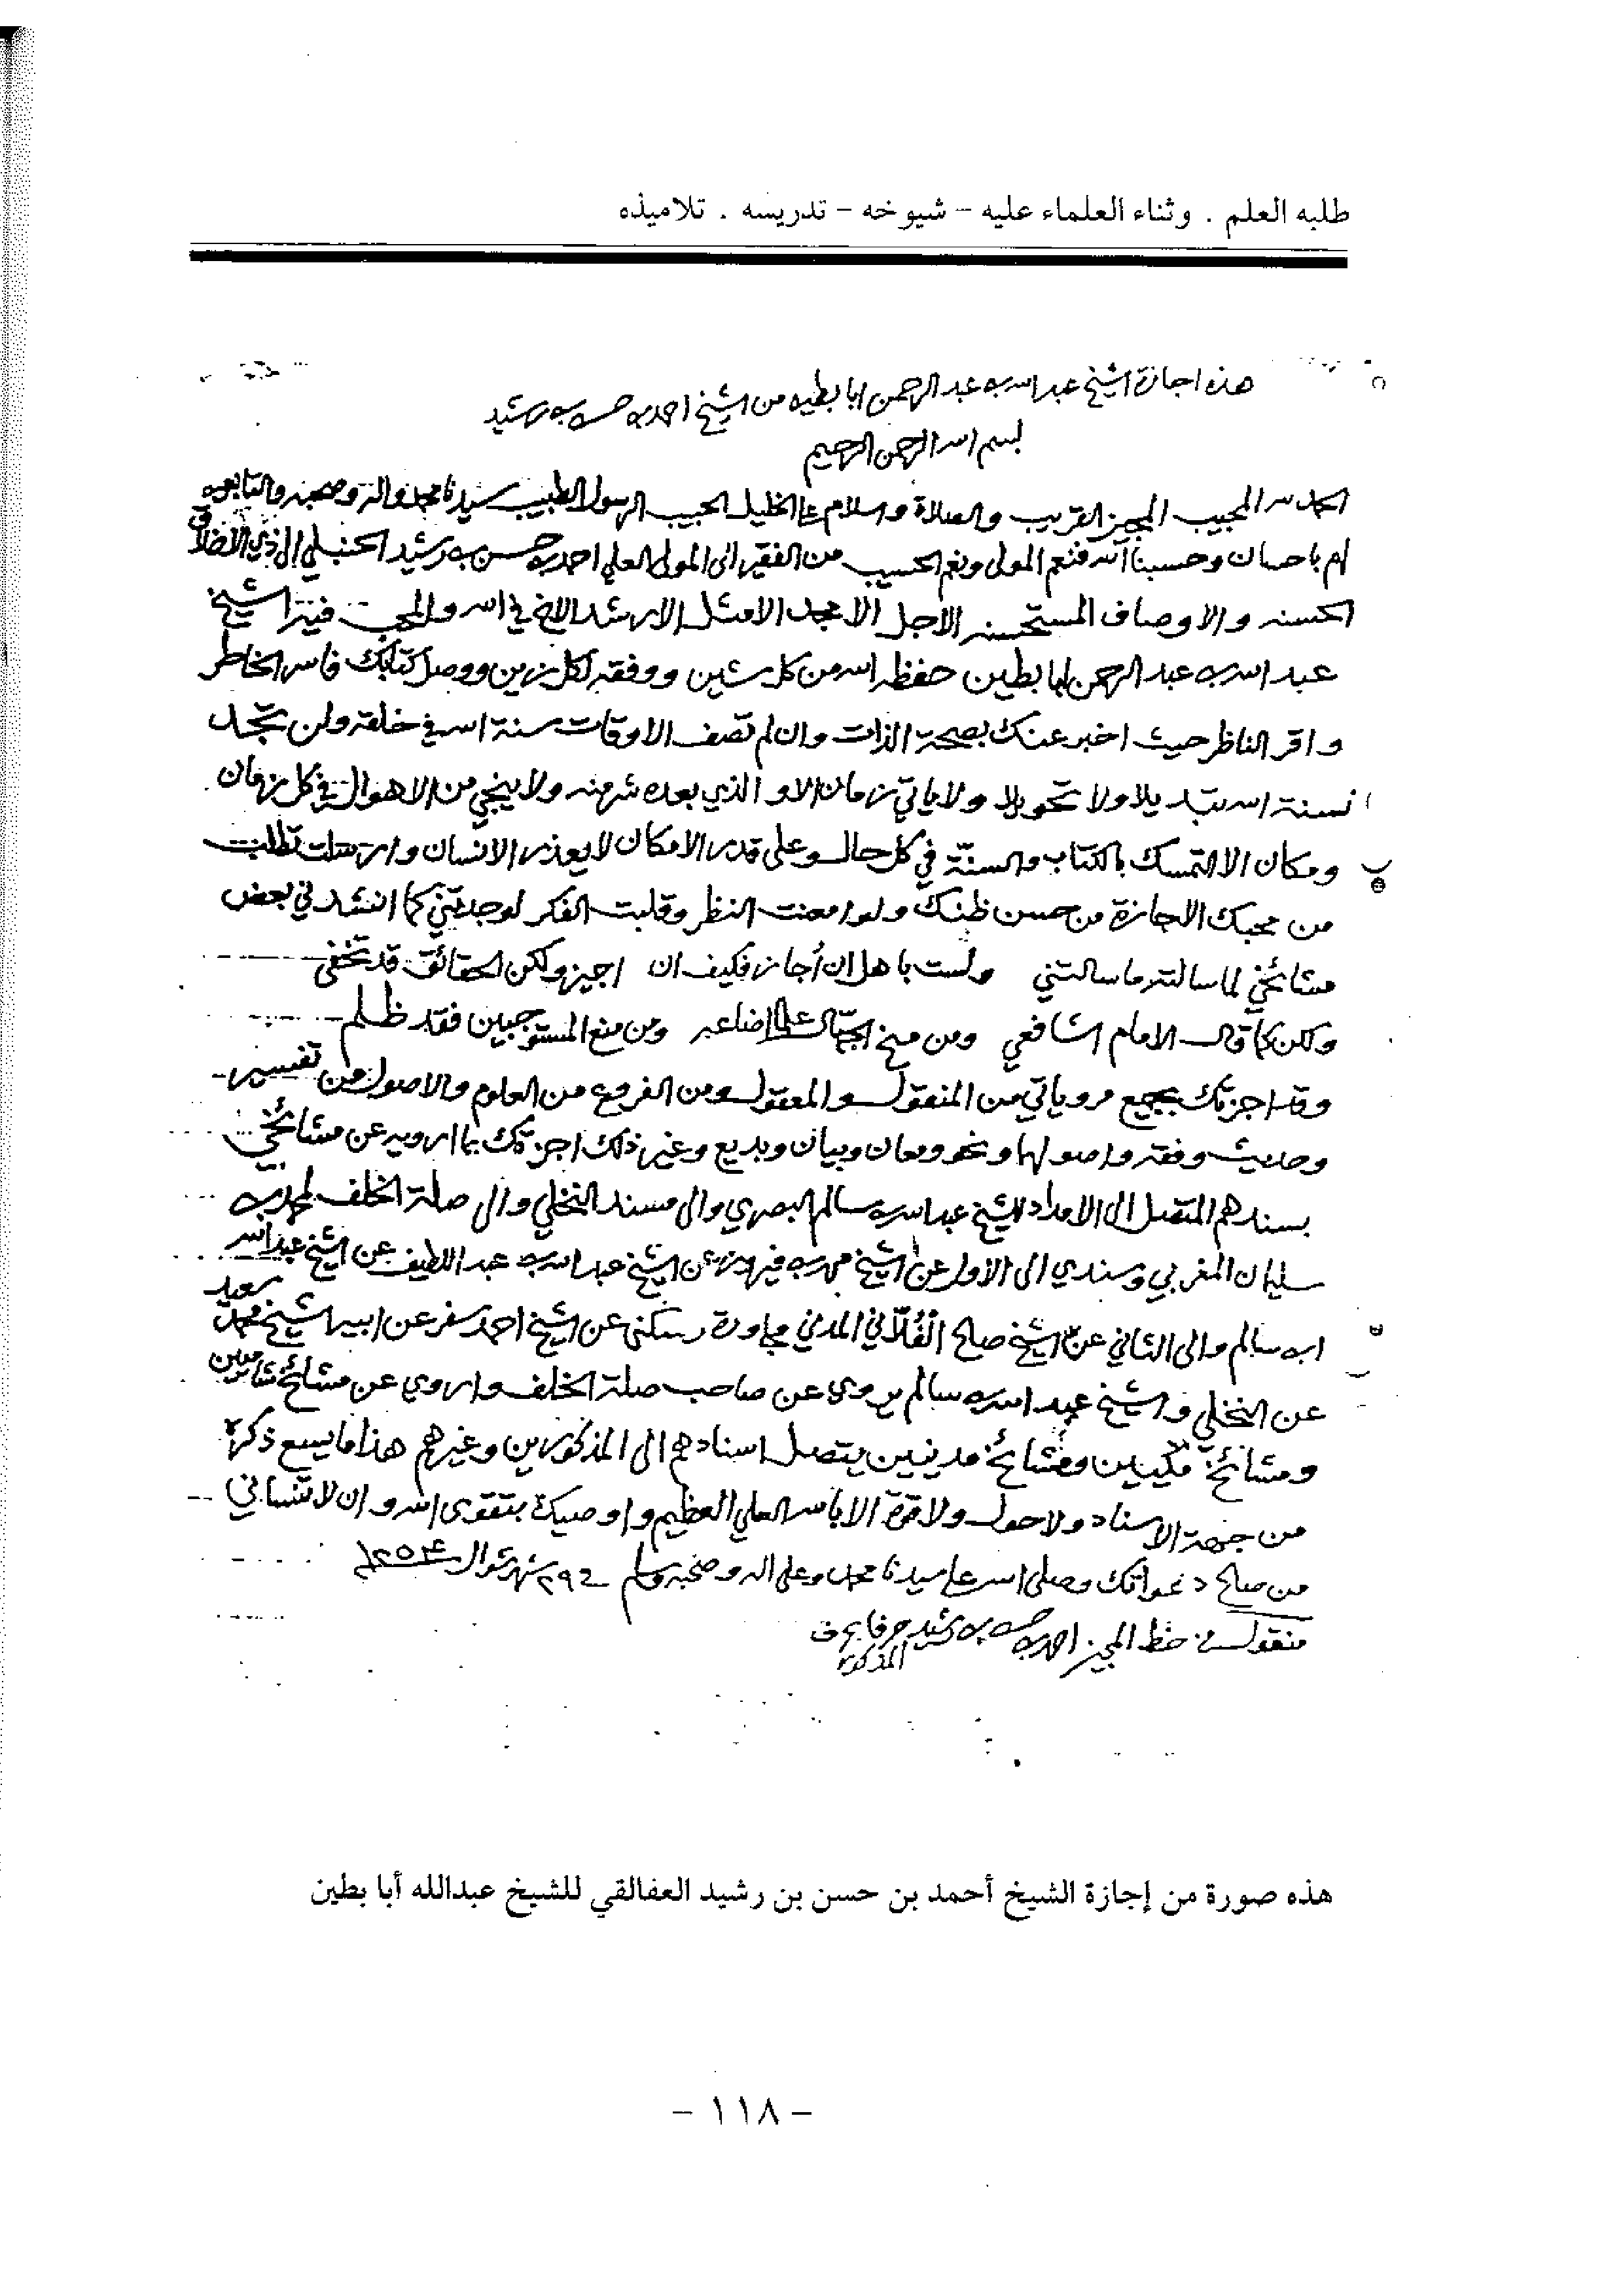 طلبه العلم . وثناء العلماء عليه - شيوخه - تدريسه . تلاميذه
هذه اجازة الشيخ عبد الله بن عبد الرحمن ابا بطين من الشيخ احمد بن حسن بن رشيد
بسم الله الرحمن الرحيم
الحمد لله المجيب المجيز القريب والصلاة والسلام على الخليل الحبيب الرسول الطبيب سيدنا محمد واله وصحبه والتابعين
لهم باحسان وحسبنا الله فنعم المولى ونعم الحسيب من الفقير الى المولى العلي احمد بن حسن بن رشيد الحنبلي الى ذي الاخلاق
الحسنه والاوصاف المستحسنه الاجل الامجد الامثل الارشد الاخ في الله والمحب فيه الشيخ
عبد الله بن عبد الرحمن ابا بطين حفظه الله من كل شين ووفقه لكل زين ووصل كتابك فاسر الخاطر
واقر الناظر حيث اخبر عنك بصحة الذات وان لم تصف الاوقات سنة الله في خلقه ولن تجد
لسنة الله تبديلا ولا تحويلا ولا ياتي زمان الا و الذي بعده شر منه ولا ينجي من الاهوال في كل زمان
ومكان الا التمسك بالكتاب والسنة في كل حال وعلى قدر الامكان لا يعذر الانسان وارسلت تطلب
من محبك الاجازة من حسن ظنك ولو امعنت النظر وقلبت الفكر لوجدتني كما انشدني بعض
مشائخي لما سالته ما سالتني ولست باهل ان أجاز فكيف ان اجيز ولكن الحقائق قد تخفى
ولكن كما قال الامام الشافعي ومن منح الجهال علما اضاعه ومن منع المستوجبين فقد ظلم
وقد اجزتك بجميع مروياتي من المنقول والمعقول ومن الفروع من العلوم والاصول من تفسير
وحديث وفقه واصولها ونحو ومعان وبيان وبديع وغير ذلك اجزتك بما ارويه عن مشائخي
بسندهم المتصل الى الامداد للشيخ عبد الله بن سالم البصري والى مسند النخلي والى صلة الخلف لمحمد بن
سليمان المغربي وسندي الى الاول عن الشيخ محمد بن فيروز عن الشيخ عبد الله بن عبد اللطيف عن الشيخ عبد الله
ابن سالم والى الثاني عن الشيخ صالح الفُلّاني المدني مجاورة وسكنى عن الشيخ احمد سفر عن ابيه الشيخ محمد سعيد
عن النخلي والشيخ عبد الله بن سالم يروي عن صاحب صلة الخلف واروي عن مشائخ شاميين
ومشائخ مكيين ومشائخ مدنيين يتصل اسنادهم الى المذكورين وغيرهم هذا ما يسع ذكره
من جهة الاسناد ولا حول ولا قوة الا بالله العلي العظيم واوصيك بتقوى الله وان لا تنساني
من صالح دعواتك وصلى الله على سيدنا محمد وعلى اله وصحبه وسلم شهر شوال
منقول من خط المجيز احمد بن حسن بن رشيد حرفا بحرف
المذكور
هذه صورة من إجازة الشيخ أحمد بن حسن بن رشيد العفالقي للشيخ عبدالله أبا بطين
- ١١٨ -